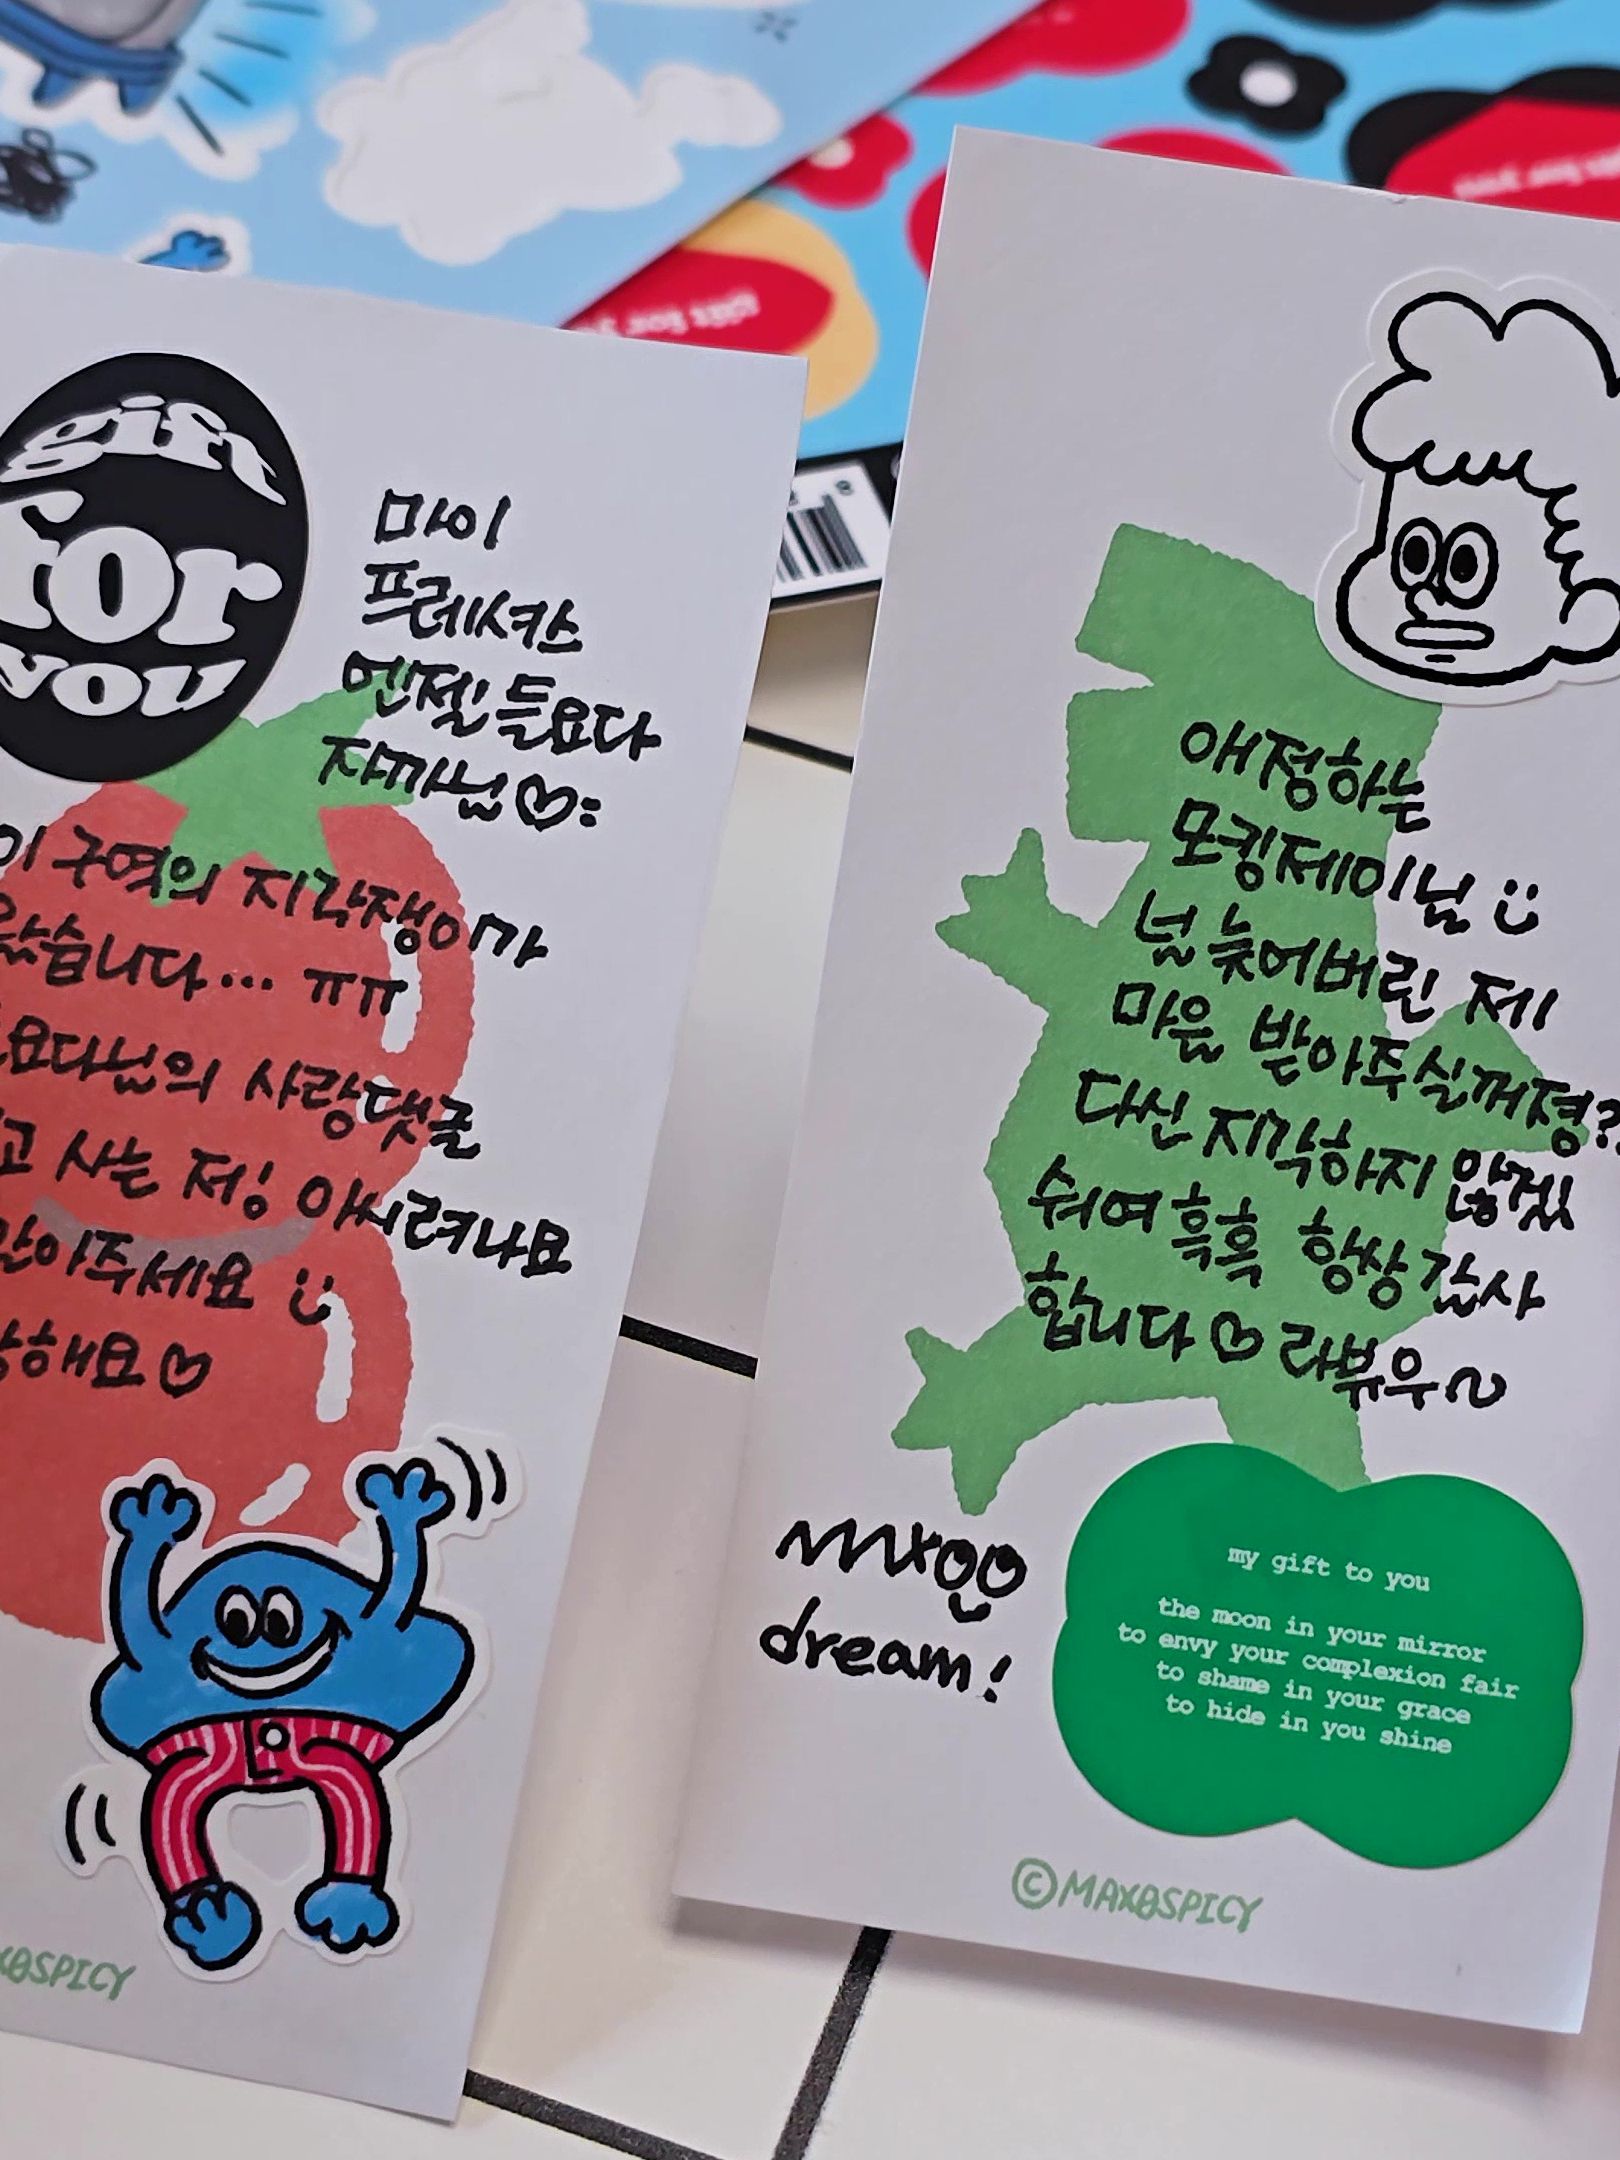 gift
for
you
마이
프레셔스
엔젤 들요다
자까님♡:
이 구역의 지각쟁이가
왔습니다... ㅠㅠ
요다님의 사랑댓글
고 사는 저잉
받아주세요 :)
해요♡
SPICY
애정하는
모킹제이님 :)
넘 늦어버린 제
마음 받아주실꺼졍?
다신 지각하지 않겠
숴여 흑흑 항상 감사
합니다♡ 라뷰우~
dream!
my gift to you
the moon in your mirror
to envy your complexion fair
to shame in your grace
to hide in you shine
©MAXOSPICY